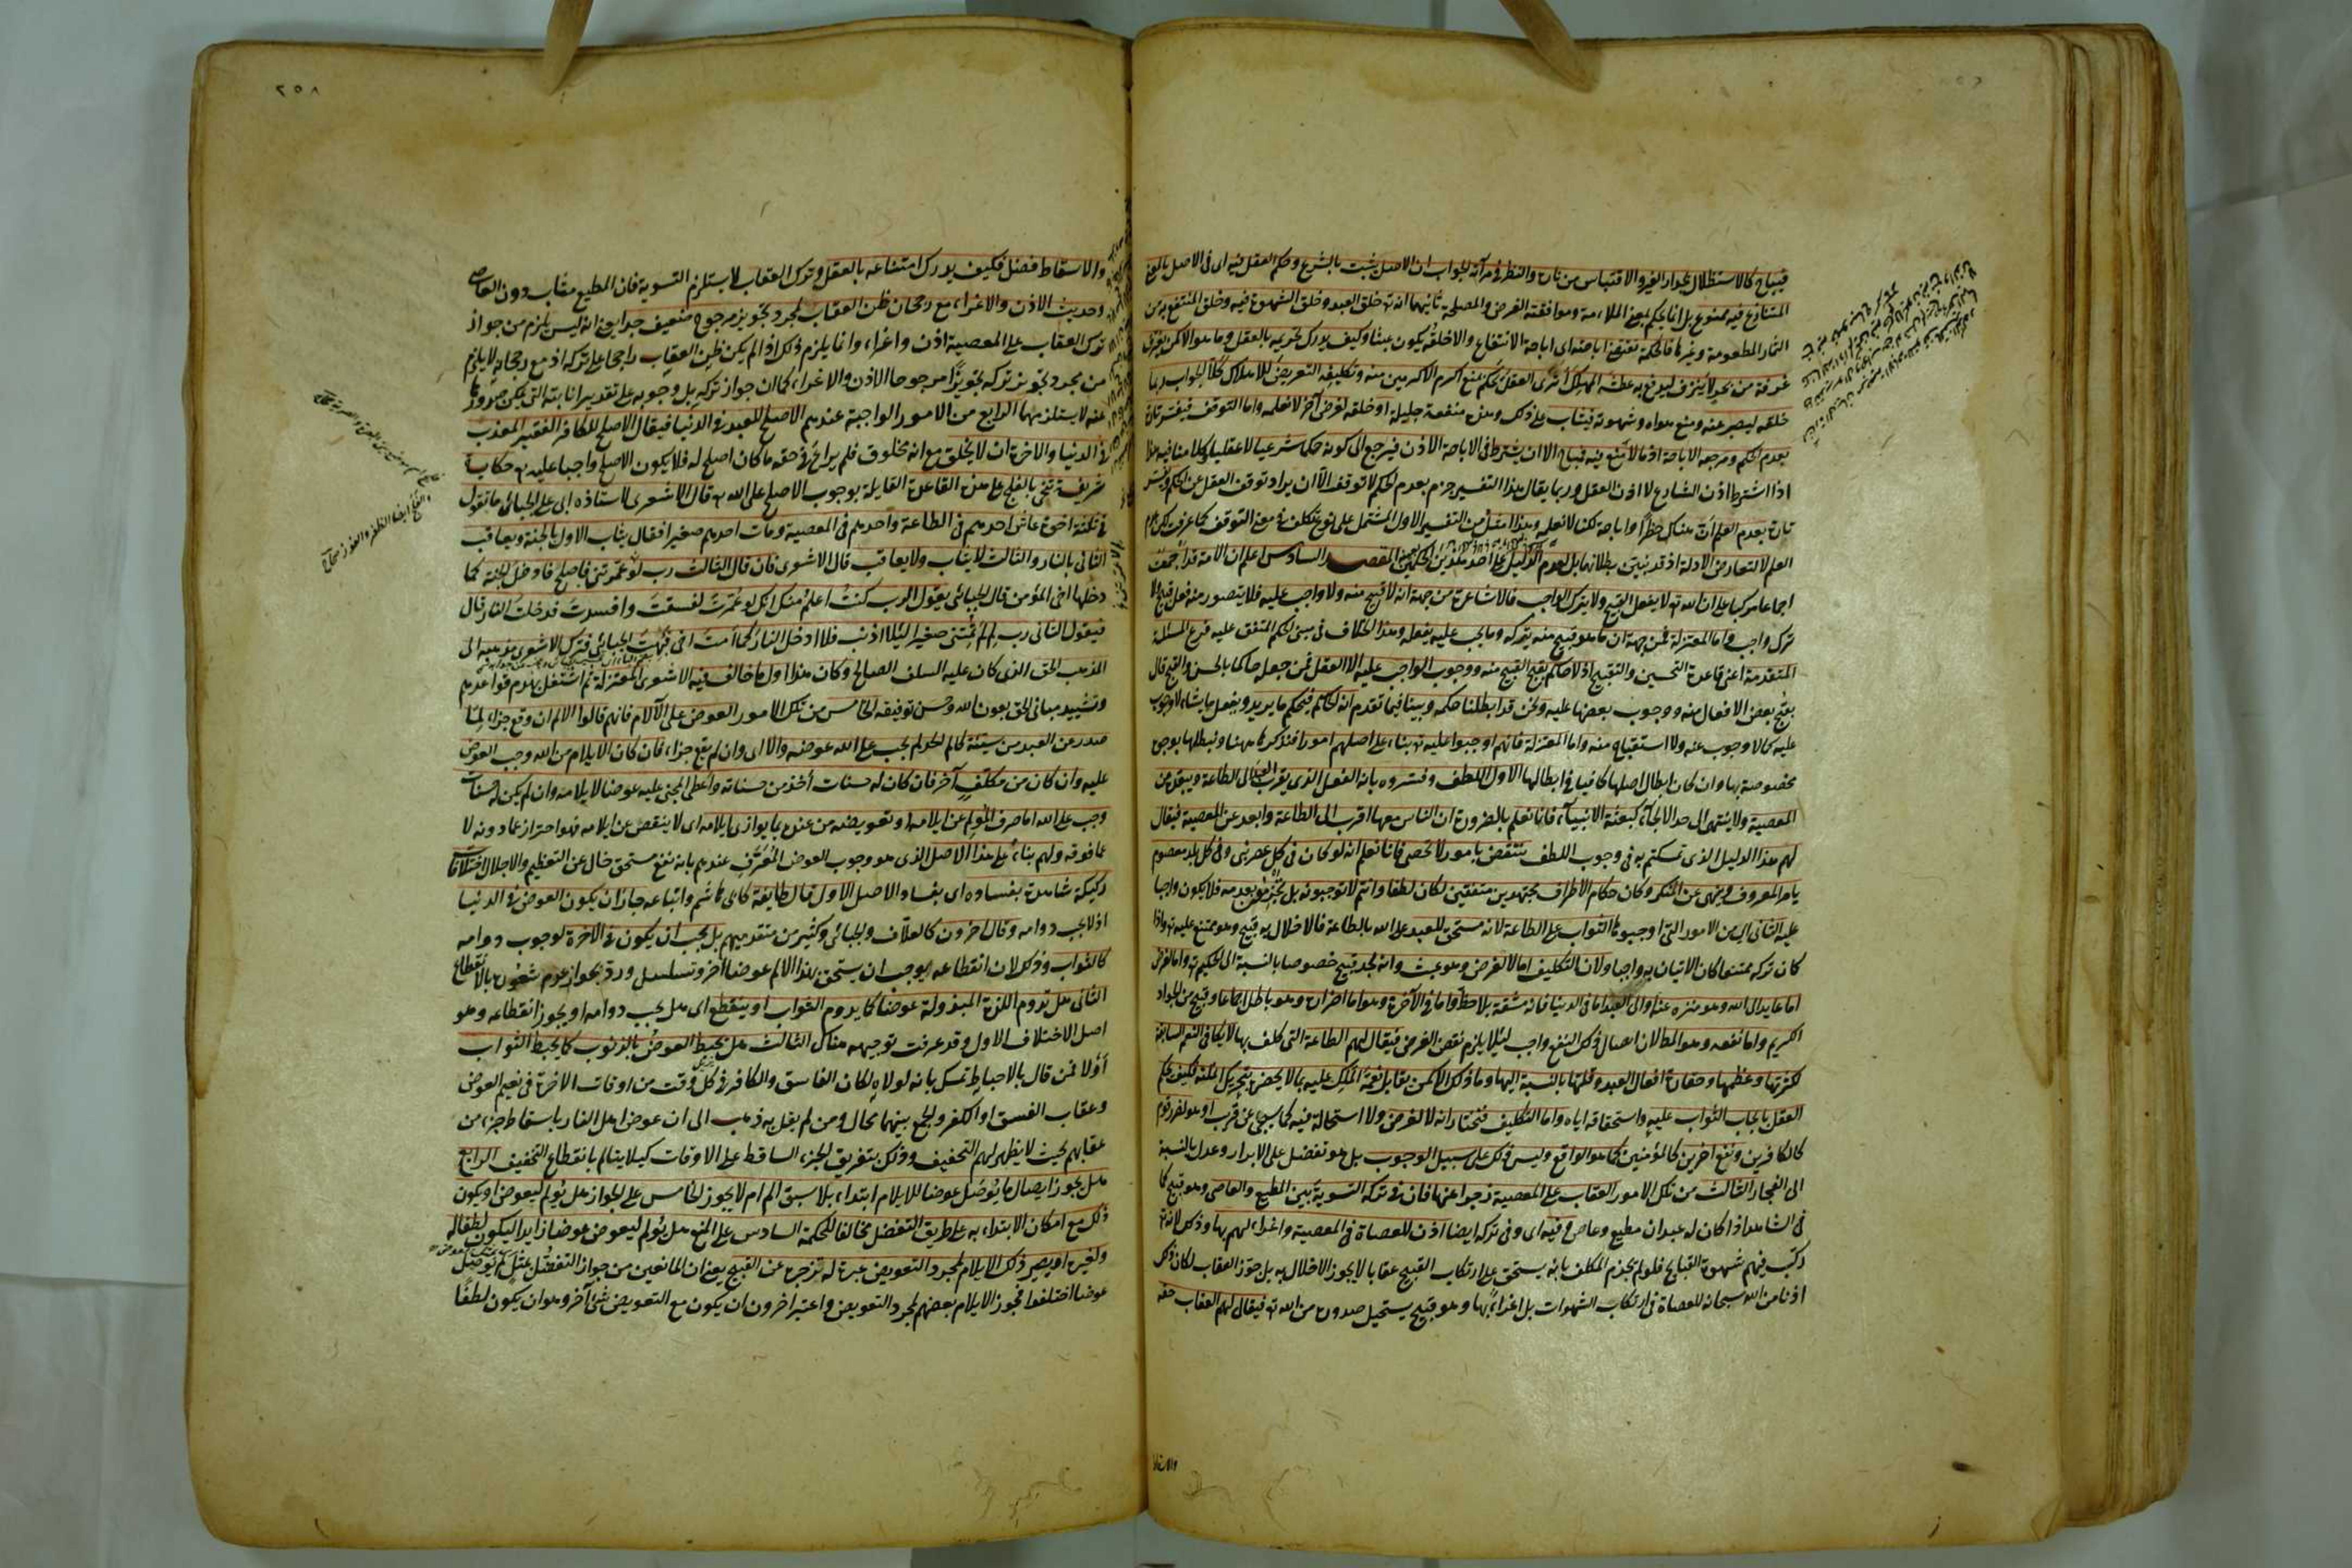 فيباح كالاستظلال بجدار الغير والاقتباس من ناره والنظر في مرآته الجواب ان الاصل يثبت بالشرع وحكم العقل فيه اى فى الاصل بالمعنى
المتنازع فيه ممنوع بل انما يحكم بمعنى الملاءمة وموافقة الغرض والمصلحة ثانيهما انه تع خلق العبد وخلق الشهوة فيه وخلق المنتفع به من
الثمار المطعومة وغيرها فالحكمة تقتضى اباحته اى اباحة الانتفاع والا لخلقه يكون عبثا وكيف يدرك تحريمه بالعقل وما هو الا كمن يغترف
غرفة من بحر لا ينزف ليدفع به عطشه المهلك أترى العقل يحكم بمنع اكرم الاكرمين منه وتكليفه التعرض للهلاك كلا الجواب ربما
خلقه ليصبر عنه ويمنع هواه وشهوته فيثاب على ذلك وهذه منفعة جليلة او خلقه لغرض آخر لا نعلمه واما التوقف فيفسر تارة
بعدم الحكم ومرجعه الاباحة اذ ما لا منع فيه فمباح الا ان يشترط فى الاباحة الاذن فيرجع الى كونه حكما شرعيا لا عقليا وكلامنا فيه هذا
اذا اشترط اذن الشارع لا اذن العقل وربما يقال هذا التفسير جزم بعدم الحكم لا توقف الا ان يراد توقف العقل عن الحكم ويفسر
تارة بعدم العلم اى هناك حظر او اباحة لكنا لا نعلمه وهذا امثل من التفسير الاول المشتمل على نوع تكلف فى معنى التوقف كما عرفت لكن عدم
العلم لا لتعارض الادلة اذ قد تبين بطلانها بل لعدم الدليل على احد هذين الحكمين المقصد السادس اعلم ان الامة قد اجمعت
اجماعا مركبا على ان الله تع لا يفعل القبيح ولا يترك الواجب فالاشاعرة من جهة انه لا قبيح منه ولا واجب عليه فلا يتصور منه فعل قبيح ولا
ترك واجب واما المعتزلة فمن جهة ان ما هو قبيح منه يتركه وما يجب عليه يفعله وهذا الخلاف فى مبنى الحكم المتفق عليه فرع المسئلة
المتقدمة اعنى قاعدة التحسين والتقبيح اذ لا حاكم بقبح القبيح منه ووجوب الواجب عليه الا العقل فمن جعله حاكما بالحسن والقبح قال
بقبح بعض الافعال منه ووجوب بعضها عليه ونحن قد ابطلنا حكمه وبينا فيما تقدم انه تع الحاكم فيحكم ما يريد ويفعل ما يشاء لا وجوب
عليه كما لا وجوب عنه ولا استقباح منه واما المعتزلة فانهم اوجبوا عليه تع بناء على اصلهم امورا فنذكرها ههنا ونبطلها بوجوه
مخصوصة بها وان كان ابطال اصلها كافيا فى ابطالها الاول اللطف وفسروه بانه الفعل الذى يقرب العبد الى الطاعة ويبعده عن
المعصية ولا ينتهى الى حد الالجاء كبعثة الانبياء فانا نعلم بالضرورة ان الناس معها اقرب الى الطاعة وابعد عن المعصية فيقال
لهم هذا الدليل الذى تمسكتم به فى وجوب اللطف ينتقض بامور لا تحصى فانا نعلم انه لو كان فى كل عصر نبى وفى كل بلد معصوم
يامر بالمعروف وينهى عن المنكر وكان حكام الاطراف مجتهدين متقين لكان لطفا وانتم لا توجبونه بل نجزم بعدمه فلا يكون واجبا
عليه الثانى من الامور التى اوجبوها الثواب على الطاعة لانه مستحق للعبد على الله بالطاعة فالاخلال به قبيح وهو ممتنع عليه تع واذا
كان تركه ممتنعا كان الاتيان به واجبا ولان التكليف اما لا لغرض وهو عبث وانه لجد قبيح خصوصا بالنسبة الى الحكيم تع واما لغرض
اما عايد الى الله وهو منزه عنه او الى العبد اما فى الدنيا فانه مشقة بلا حظ واما فى الآخرة وهو اما اضراره وهو باطل اجماعا وقبيح من الجواد
الكريم واما نفعه وهو المط لان ايصال ذلك النفع واجب لئلا يلزم نقض الغرض فيقال لهم الطاعة التى كلف بها لا تكافى النعم السابقة
لكثرتها وعظمها وحقارة افعال العبد وقلتها بالنسبة اليها وما ذلك الا كمن يقابل نعمة الملك عليه بما لا يحصى بتحريك انملته فكيف يحكم
العقل بايجاب الثواب عليه واستحقاقه اياه واما التكليف فنختار انه لا لغرض ولا استحالة فيه كما سيجئ عن قرب او هو لضر قوم
كالكافرين ونفع آخرين كالمؤمنين كما هو الواقع وليس ذلك على سبيل الوجوب بل هو تفضل على الابرار وعدل بالنسبة
الى الفجار الثالث من تلك الامور العقاب على المعصية زجرا عنها فان فى تركه التسوية بين المطيع والعاصى وهو قبيح كما
فى الشاهد اذا كان له عبدان مطيع وعاص وفيه اى وفى تركه ايضا اذن للعصاة فى المعصية واغراء لهم بها وذلك لانه تع
ركب فيهم شهوة القبايح فلو لم يجزم المكلف بانه يستحق على ارتكاب القبيح عقابا لا يجوز الاخلال به بل جوز العقاب لكان ذلك
اذنا من الله سبحانه للعصاة فى ارتكاب الشهوات بل اغراء بها وهو قبيح يستحيل صدوره من الله تع فيقال لهم العقاب حقه
والاسقاط
٢٥٨
والاسقاط فضل فكيف يدرك امتناعه بالعقل وترك العقاب لا يستلزم التسوية فان المطيع مثاب دون العاصى
وحديث الاذن والاغراء مع رجحان ظن العقاب بمجرد تجويز مرجوح ضعيف جدا يعنى انه ليس يلزم من جواز
ترك العقاب على المعصية اذن واغراء وانما يلزم ذلك اذا لم يكن ظن العقاب راجحا على تركه اذ مع رجحانه لا يلزم
من مجرد تجويز تركه تجويزا مرجوحا الاذن والاغراء كما ان جواز تركه بل وجوبه على تقدير انابته التى يمكن صدورها
عنه لا يستلزمهما الرابع من الامور الواجبة عندهم الاصلح للعبد فى الدنيا فيقال الاصلح للكافر الفقير المعذب
فى الدنيا والاخرة ان لا يخلق مع انه مخلوق فلم يراع فى حقه ما كان اصلح له فلا يكون الاصلح واجبا عليه تع حكاية
شريفة تنحى بالقلع على هذه القاعدة القايلة بوجوب الاصلح على الله تع قال الاشعرى لاستاذه ابى على الجبائى ما تقول
فى ثلثة اخوة عاش احدهم فى الطاعة واحدهم فى المعصية ومات احدهم صغيرا فقال يثاب الاول بالجنة ويعاقب
الثانى بالنار والثالث لا يثاب ولا يعاقب قال الاشعرى فان قال الثالث رب لو عمرتنى فاصلح فادخل الجنة كما
دخلها اخى المؤمن قال الجبائى يقول الرب كنت اعلم منك انك لو عمرت لفسقت وافسدت فدخلت النار قال
فيقول الثانى رب لم لم تمتنى صغيرا لئلا اذنب فلا ادخل النار كما امت اخى فبهت الجبائى فترك الاشعرى مذهبه الى
المذهب الحق الذى كان عليه السلف الصالح وكان هذا اول ما خالف فيه الاشعرى المعتزلة ثم اشتغل بهدم قواعدهم
وتشييد مبانى الحق بعون الله وحسن توفيقه الخامس من تلك الامور العوض على الآلام فانهم قالوا الالم ان وقع جزاء لما
صدر عن العبد من سيئة كالم الحد لم يجب على الله عوضه والا اى وان لم يقع جزاء فان كان الايلام من الله وجب العوض
عليه وان كان من مكلف آخر فان كان له حسنات أخذ من حسناته واعطى المجنى عليه عوضا لايلامه وان لم يكن له حسنات
وجب على الله اما صرف المولم عن ايلامه او تعويضه من عنده بما يوازى ايلامه اى لا ينقص عن ايلامه فهو احتراز عما دونه لا
عما فوقه ولهم بناء على هذا الاصل الذى هو وجوب العوض المعرف عندهم بانه نفع مستحق خال عن التعظيم والاجلال اختلافات
ركيكة شاهدة بفساده اى بفساد الاصل الاول قال طايفة كابى هاشم واتباعه جاز ان يكون العوض فى الدنيا
اذ لا يجب دوامه وقال آخرون كالعلاف والجبائى وكثير من متقدميهم بل يجب ان يكون فى الاخرة لوجوب دوامه
كالثواب وذلك لان انقطاعه يوجب ان يستحق بهذا الالم عوضا آخر وتسلسل ورد بجواز عدم شعوره بالانقطاع
الثانى هل تدوم اللذة المبذولة عوضا كما يدوم الثواب او ينقطع اى هل يجب دوامه او يجوز انقطاعه وهو
اصل الاختلاف الاول وقد عرفت توجيهه هناك الثالث هل يحبط العوض بالذنوب كما يحبط الثواب
أو لا فمن قال بالاحباط تمسك بانه لولاه لكان الفاسق والكافر فى كل وقت من اوقات الاخرة فى نعيم العوض
وعقاب الفسق او الكفر والجمع بينهما محال ومن لم يقل به ذهب الى ان عوض اهل النار باسقاط جزء من
عقابهم بحيث لا يظهر لهم التخفيف وذلك بتفريق الجزء الساقط على الاوقات كيلا يتالم بانقطاع التخفيف الرابع
هل يجوز ايصال ما يوصل عوضا للايلام ابتداء بلا سبق الم ام لا يجوز الخامس على الجواز هل يولم ليعوض او يكون
ذلك مع امكان الابتداء به على طريق التفضل مخالفا للحكمة السادس على المنع هل يولم ليعوض عوضا زايدا ليكون لطفا له
ولغيره او يصير ذلك الايلام لمجرد التعويض عبرة له تزجره عن القبيح يعنى ان المانعين من جواز التفضل بمثل ما يوصل
عوضا اختلفوا فجوز الايلام بعضهم لمجرد التعويض واعتبر اخرون ان يكون مع التعويض شئ آخر وهو ان يكون لطفا